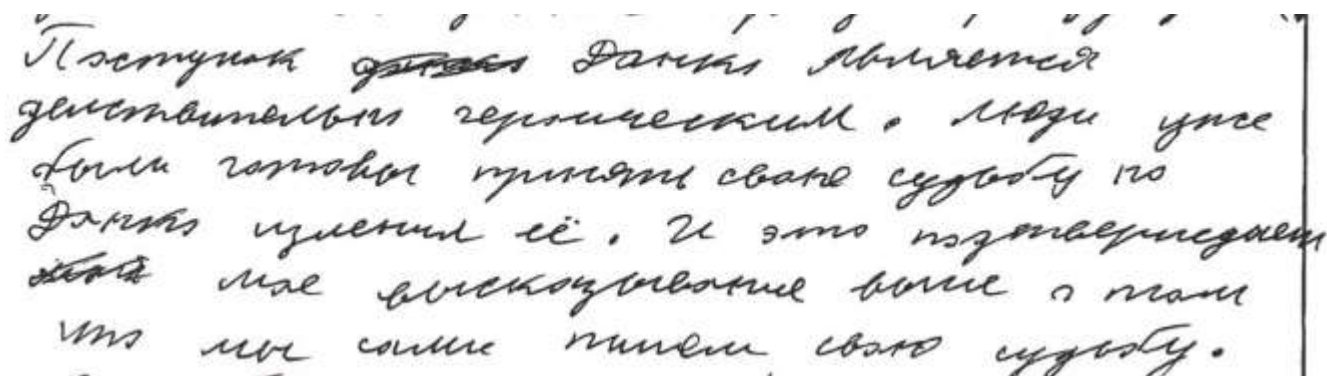 Поступок Данко является
действительно героическим. Люди уже
были готовы принять свою судьбу но
Данко изменил её. И это подтверждает
мое высказывание выше о том
что мы сами пишем свою судьбу.